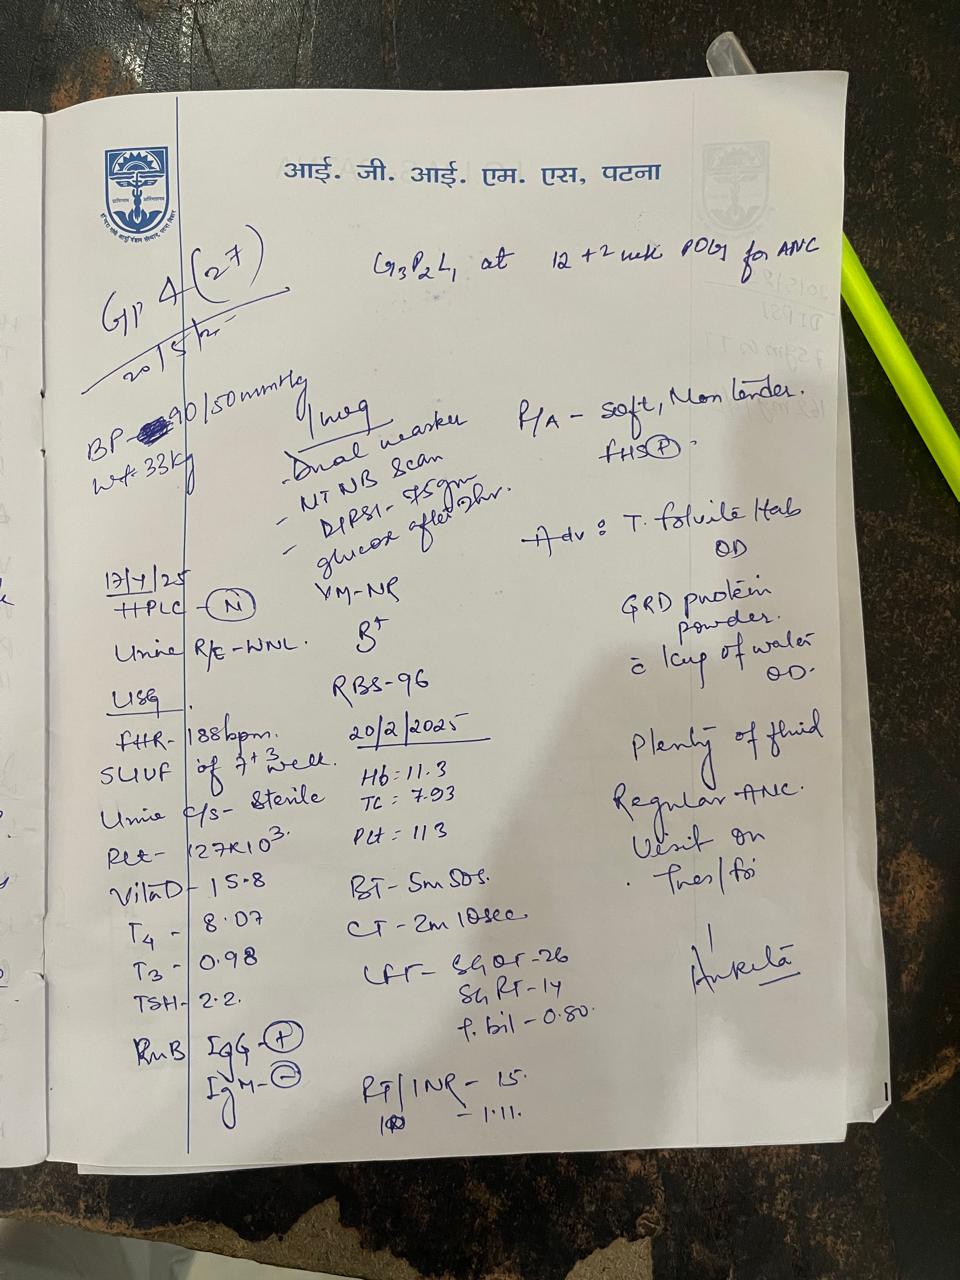 आई. जी. आई. एम. एस, पटना
Gp 4 (27)
20/5/25
G3P2L1 at 12+2 week POG for ANC
BP- 90/50mmHg
wt- 33kg
- Dual marker
- NT NB Scan
- DIPSI- 75gm
glucose after 2hr.
P/A - soft, Non tender.
FHS (+).
Adv: T. folvite tab
OD
GRD protein
powder.
c̄ 1 cup of water
OD.
Plenty of fluid
Regular ANC.
Visit on
Tues/fri
Ankita
17/4/25
HPLC - (N)
Urine R/E - WNL.
USG.
FHR- 188bpm.
SLIUF of 7+3 week.
Urine C/S- Sterile
Plt- 127x10³.
VitaD- 15.8
T4 - 8.07
T3 - 0.98
TSH- 2.2.
RuB IgG- (+)
IgM- (-)
VM-NR
B+
RBS-96
20/2/2025
Hb = 11.3
TC = 7.93
Plt = 113
BT- 5m 50s.
CT- 2m 10sec.
LFT- SGOT-26
SGPT-14
T. bil - 0.80.
PT/INR- 15.
- 1.11.